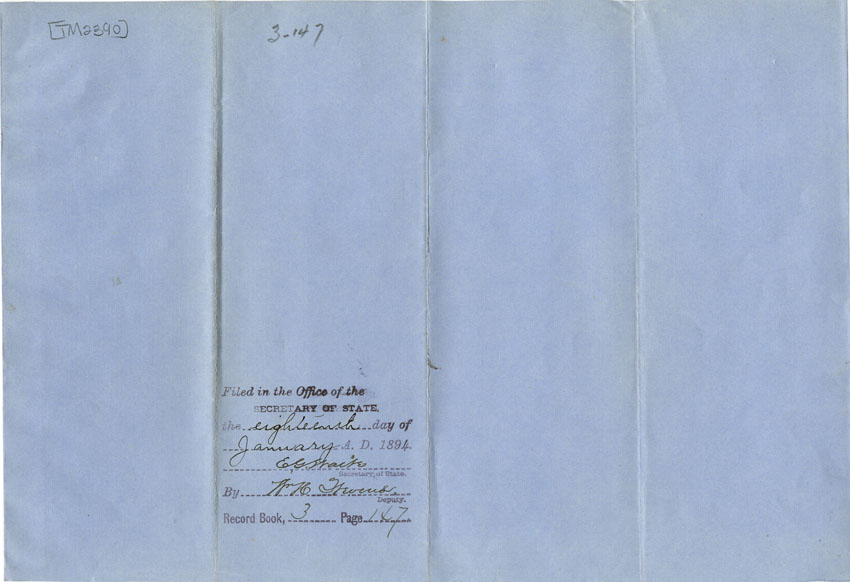 [TM2390]
3-147
Filed in the Office of the
SECRETARY OF STATE,
the eighteenth day of
January A. D. 1894.
E G Waite
Secretary of State.
By W. H.
Deputy.
Record Book, 3 Page 147